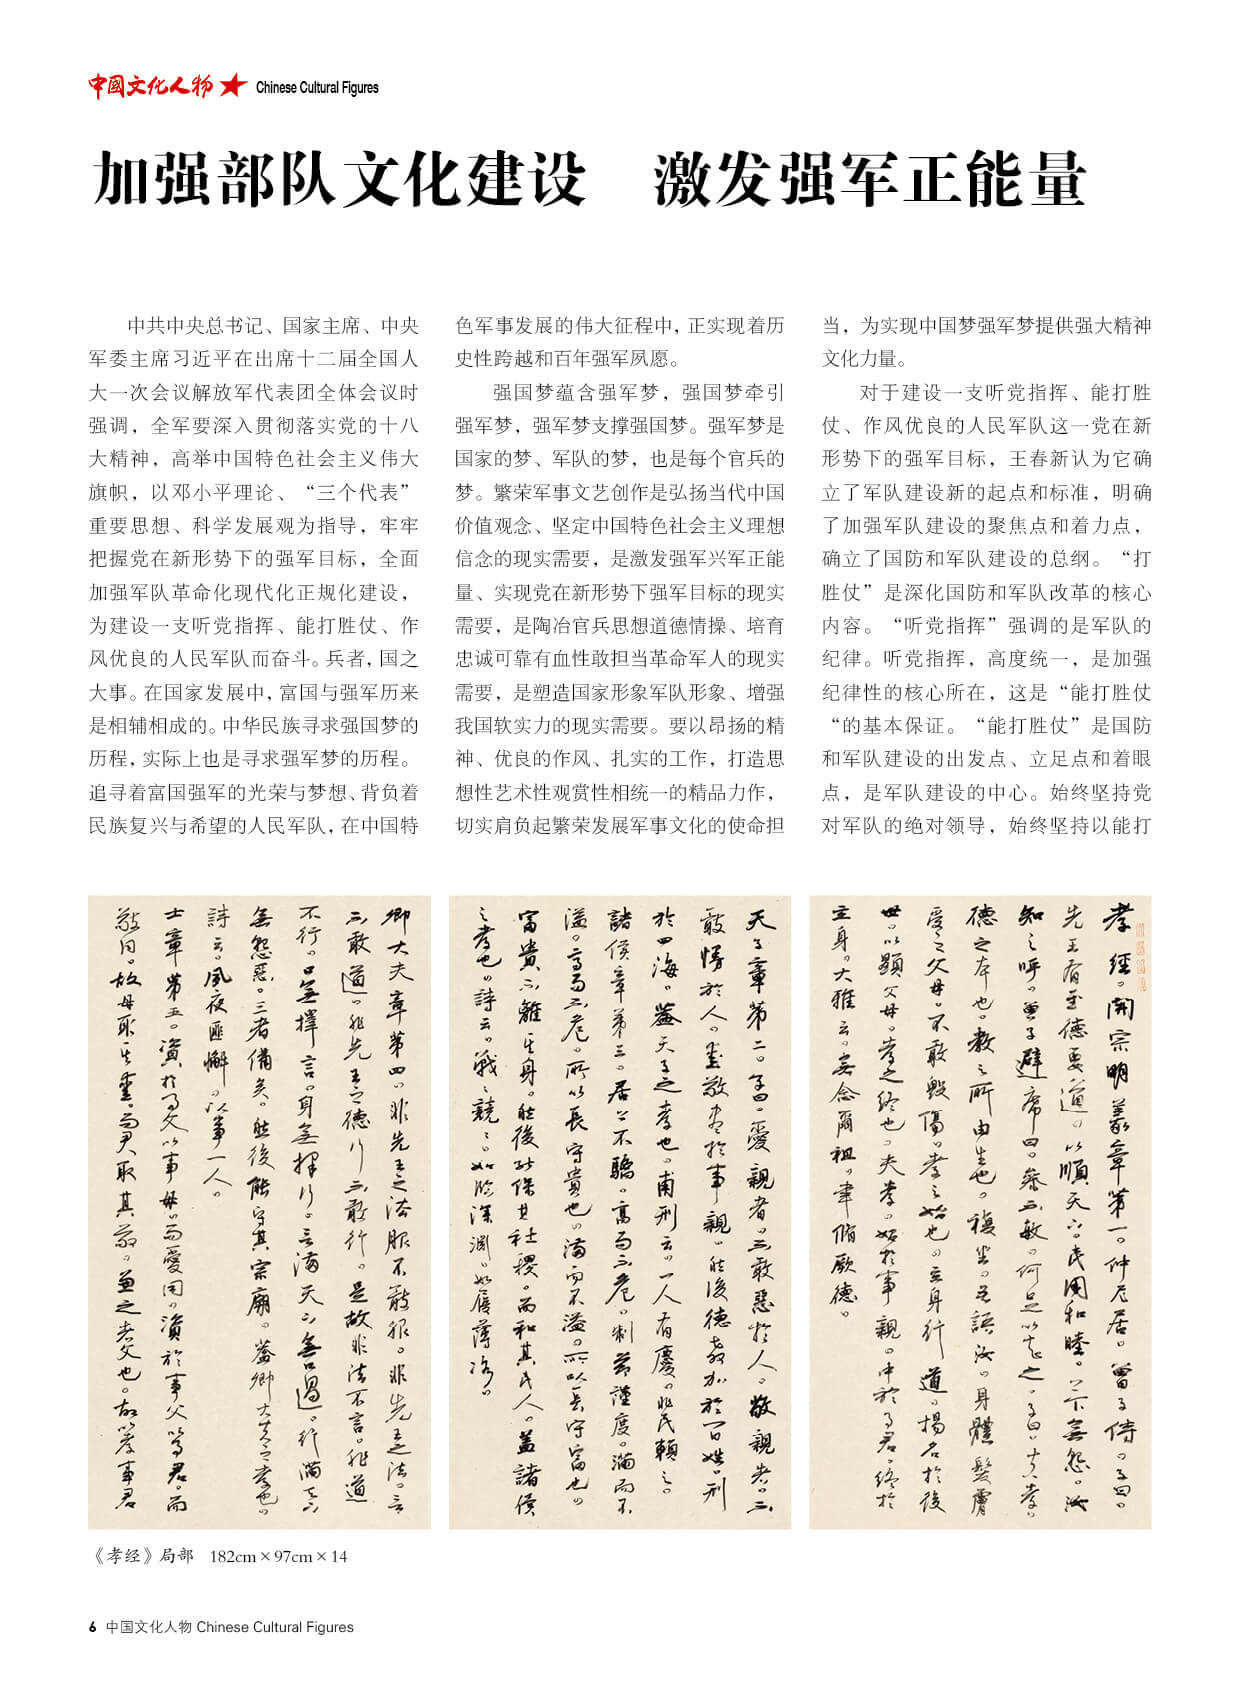 中國文化人物 Chinese Cultural Figures
加强部队文化建设 激发强军正能量
中共中央总书记、国家主席、中央
军委主席习近平在出席十二届全国人
大一次会议解放军代表团全体会议时
强调，全军要深入贯彻落实党的十八
大精神，高举中国特色社会主义伟大
旗帜，以邓小平理论、“三个代表”
重要思想、科学发展观为指导，牢牢
把握党在新形势下的强军目标，全面
加强军队革命化现代化正规化建设，
为建设一支听党指挥、能打胜仗、作
风优良的人民军队而奋斗。兵者，国之
大事。在国家发展中，富国与强军历来
是相辅相成的。中华民族寻求强国梦的
历程，实际上也是寻求强军梦的历程。
追寻着富国强军的光荣与梦想、背负着
民族复兴与希望的人民军队，在中国特
色军事发展的伟大征程中，正实现着历
史性跨越和百年强军夙愿。
强国梦蕴含强军梦，强国梦牵引
强军梦，强军梦支撑强国梦。强军梦是
国家的梦、军队的梦，也是每个官兵的
梦。繁荣军事文艺创作是弘扬当代中国
价值观念、坚定中国特色社会主义理想
信念的现实需要，是激发强军兴军正能
量、实现党在新形势下强军目标的现实
需要，是陶冶官兵思想道德情操、培育
忠诚可靠有血性敢担当革命军人的现实
需要，是塑造国家形象军队形象、增强
我国软实力的现实需要。要以昂扬的精
神、优良的作风、扎实的工作，打造思
想性艺术性观赏性相统一的精品力作，
切实肩负起繁荣发展军事文化的使命担
当，为实现中国梦强军梦提供强大精神
文化力量。
对于建设一支听党指挥、能打胜
仗、作风优良的人民军队这一党在新
形势下的强军目标，王春新认为它确
立了军队建设新的起点和标准，明确
了加强军队建设的聚焦点和着力点，
确立了国防和军队建设的总纲。“打
胜仗”是深化国防和军队改革的核心
内容。“听党指挥”强调的是军队的
纪律。听党指挥，高度统一，是加强
纪律性的核心所在，这是“能打胜仗
“的基本保证。“能打胜仗”是国防
和军队建设的出发点、立足点和着眼
点，是军队建设的中心。始终坚持党
对军队的绝对领导，始终坚持以能打
孝經。開宗明義章第一。仲尼居。曾子侍。子曰。
先王有至德要道。以順天下。民用和睦。上下無怨。汝
知之呼。曾子避席曰。參不敏。何足以知之。子曰。夫孝。
德之本也。教之所由生也。複坐。吾語汝。身體髮膚
受之父母。不敢毀傷。孝之始也。立身行道。揚名於後
世。以顯父母。孝之終也。夫孝。始於事親。中於事君。終於
立身。大雅云。無念爾祖。聿脩厥德。
天子章第二。子曰。愛親者。不敢惡於人。敬親者。不
敢慢於人。愛敬盡於事親。然後德教加於百姓。刑
於四海。蓋天子之孝也。甫刑云。一人有慶。兆民賴之。
諸侯章第三。居上不驕。高而不危。制節謹度。滿而不
溢。高而不危。所以長守貴也。滿而不溢。所以長守富也。
富貴不離其身。然後能保其社稷。而和其民人。蓋諸侯
之孝也。詩云。戰戰兢兢。如臨深淵。如履薄冰。
卿大夫章第四。非先王之法服不敢服。非先王之法。言
不敢道。非先王之德行不敢行。是故非法不言。非道
不行。口無擇言。身無擇行。言滿天下無口過。行滿天下
無怨惡。三者備矣。然後能守其宗廟。蓋卿大夫之孝也。
詩云。夙夜匪懈。以事一人。
士章第五。資於事父以事母。而愛同。資於事父以事君。而
敬同。故母取其愛。而君取其敬。兼之者父也。故以孝事君
《孝经》局部 182cm×97cm×14
6 中国文化人物 Chinese Cultural Figures